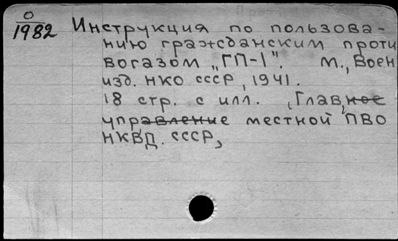 0
1982
Инструкция по пользова-
нию гражданским проти
вогазом „ГП-1". М., Воен
изд. НКО СССР, 1941.
18 стр. с илл. (Главное
управление местной ПВО
НКВД СССР,